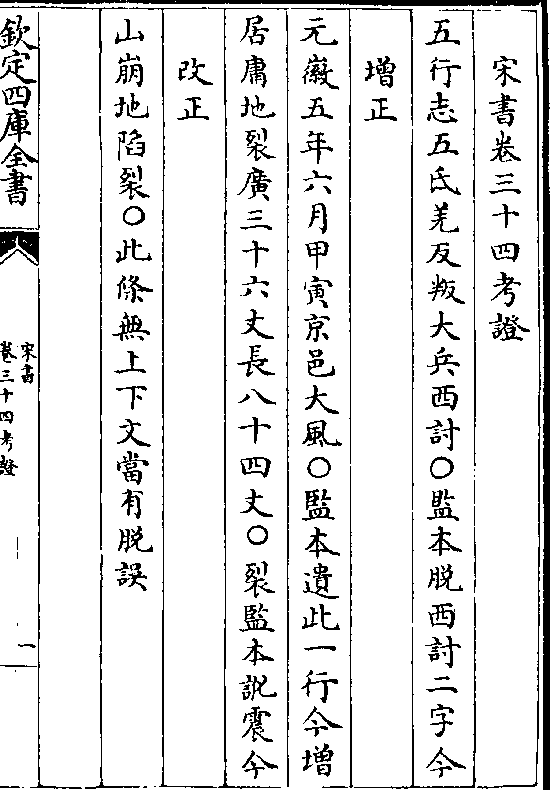 宋書卷三十四考證
五行志五氐羌反叛大兵西討○監本脫西討二字今
增正
元徽五年六月甲寅京邑大風○監本遺此一行今增
居庸地裂廣三十六丈長八十四丈○裂監本訛震今
改正
山崩地陷裂○此條無上下文當有脫誤
欽定四庫全書
宋書
卷三十四考證
一